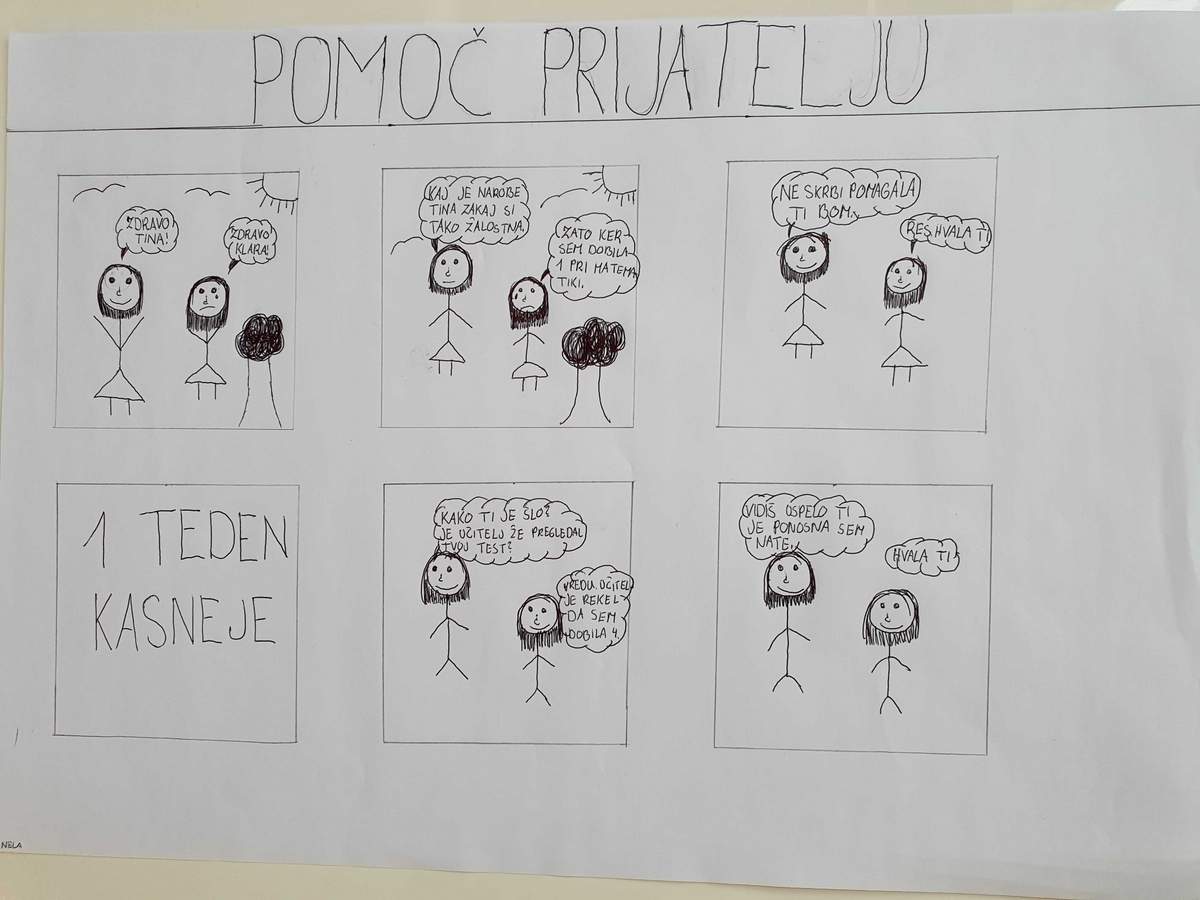 POMOČ PRIJATELJU
ZDRAVO
TINA!
ZDRAVO
KLARA!
KAJ JE NAROBE
TINA ZAKAJ SI
TAKO ŽALOSTNA.
ZATO KER
SEM DOBILA
1 PRI MATEMA
TIKI.
NE SKRBI POMAGALA
TI BOM.
RES HVALA TI
1 TEDEN
KASNEJE
KAKO TI JE ŠLO?
JE UČITELJ ŽE PREGLEDAL
TVOJ TEST?
VREDU. UČITELJ
JE REKEL
DA SEM
DOBILA 4.
VIDIŠ USPELO TI
JE PONOSNA SEM
NATE.
HVALA TI
NELA